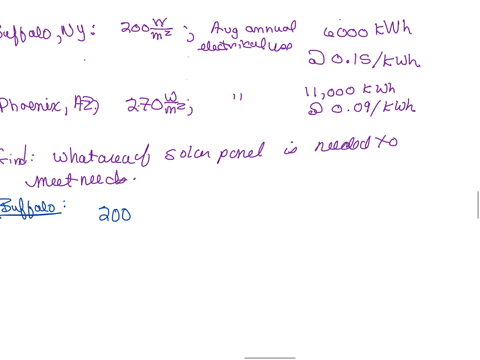 Buffalo, Ny: 200 W/m² ; Avg annual electrical use 6000 kWh
@ 0.15/kWh
Phoenix, AZ, 270 W/m² ; " 11,000 kWh
@ 0.09/kWh
Find: what area of solar panel is needed to
meet needs.
Buffalo: 200